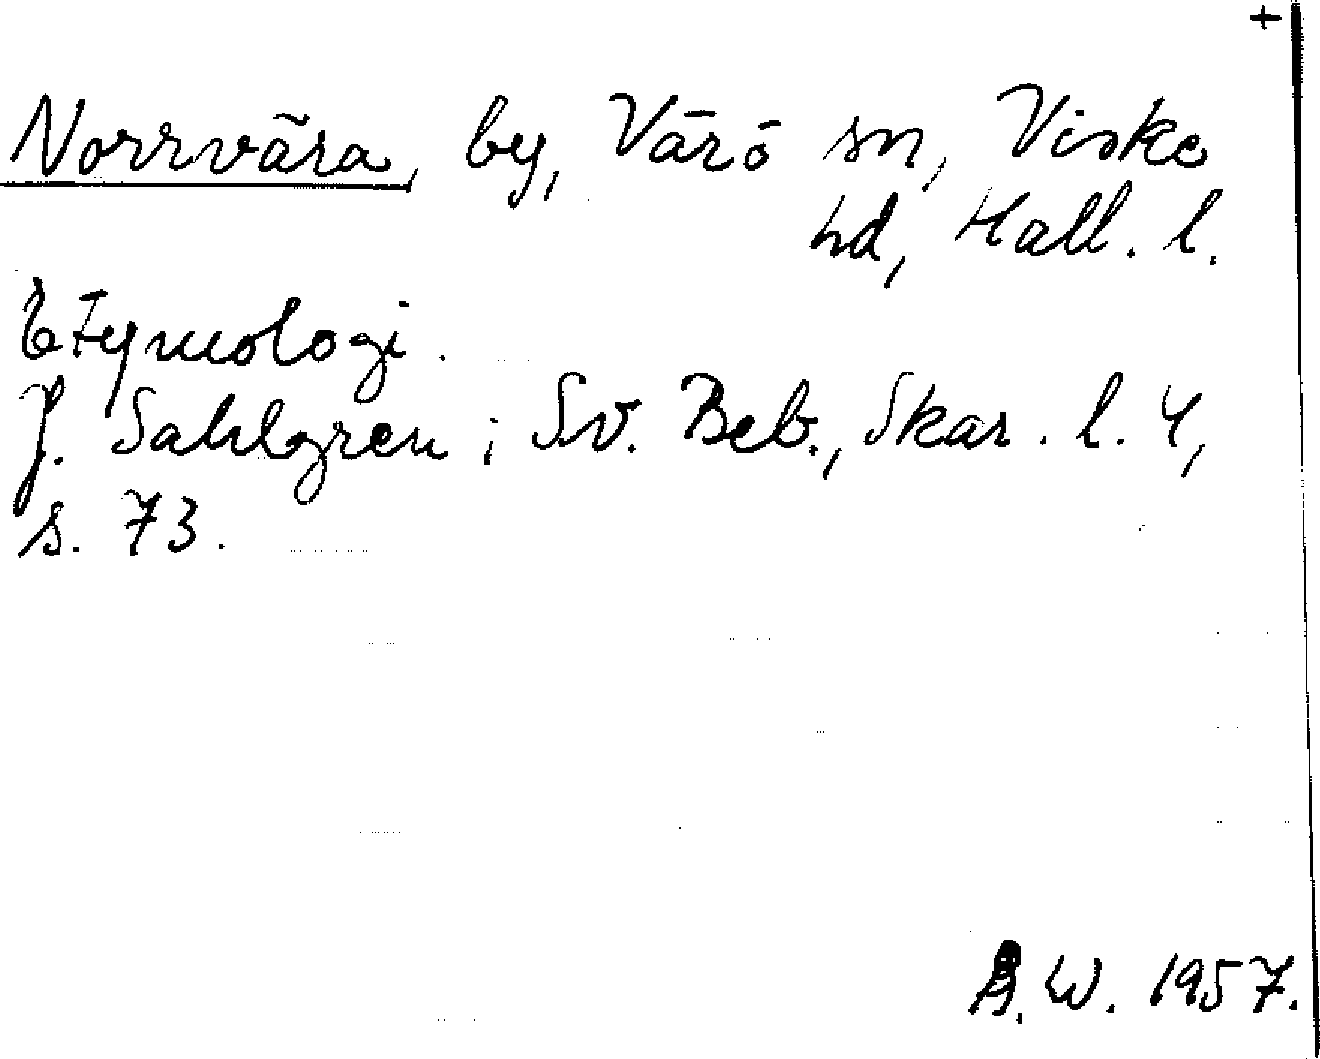 +
Norrvära, by, Värö sn, Viske
hd, Hall. l.
Etymologi.
J. Sahlgren i Sv. Beb., Skar. l. 4,
s. 73.
A.W. 1957.